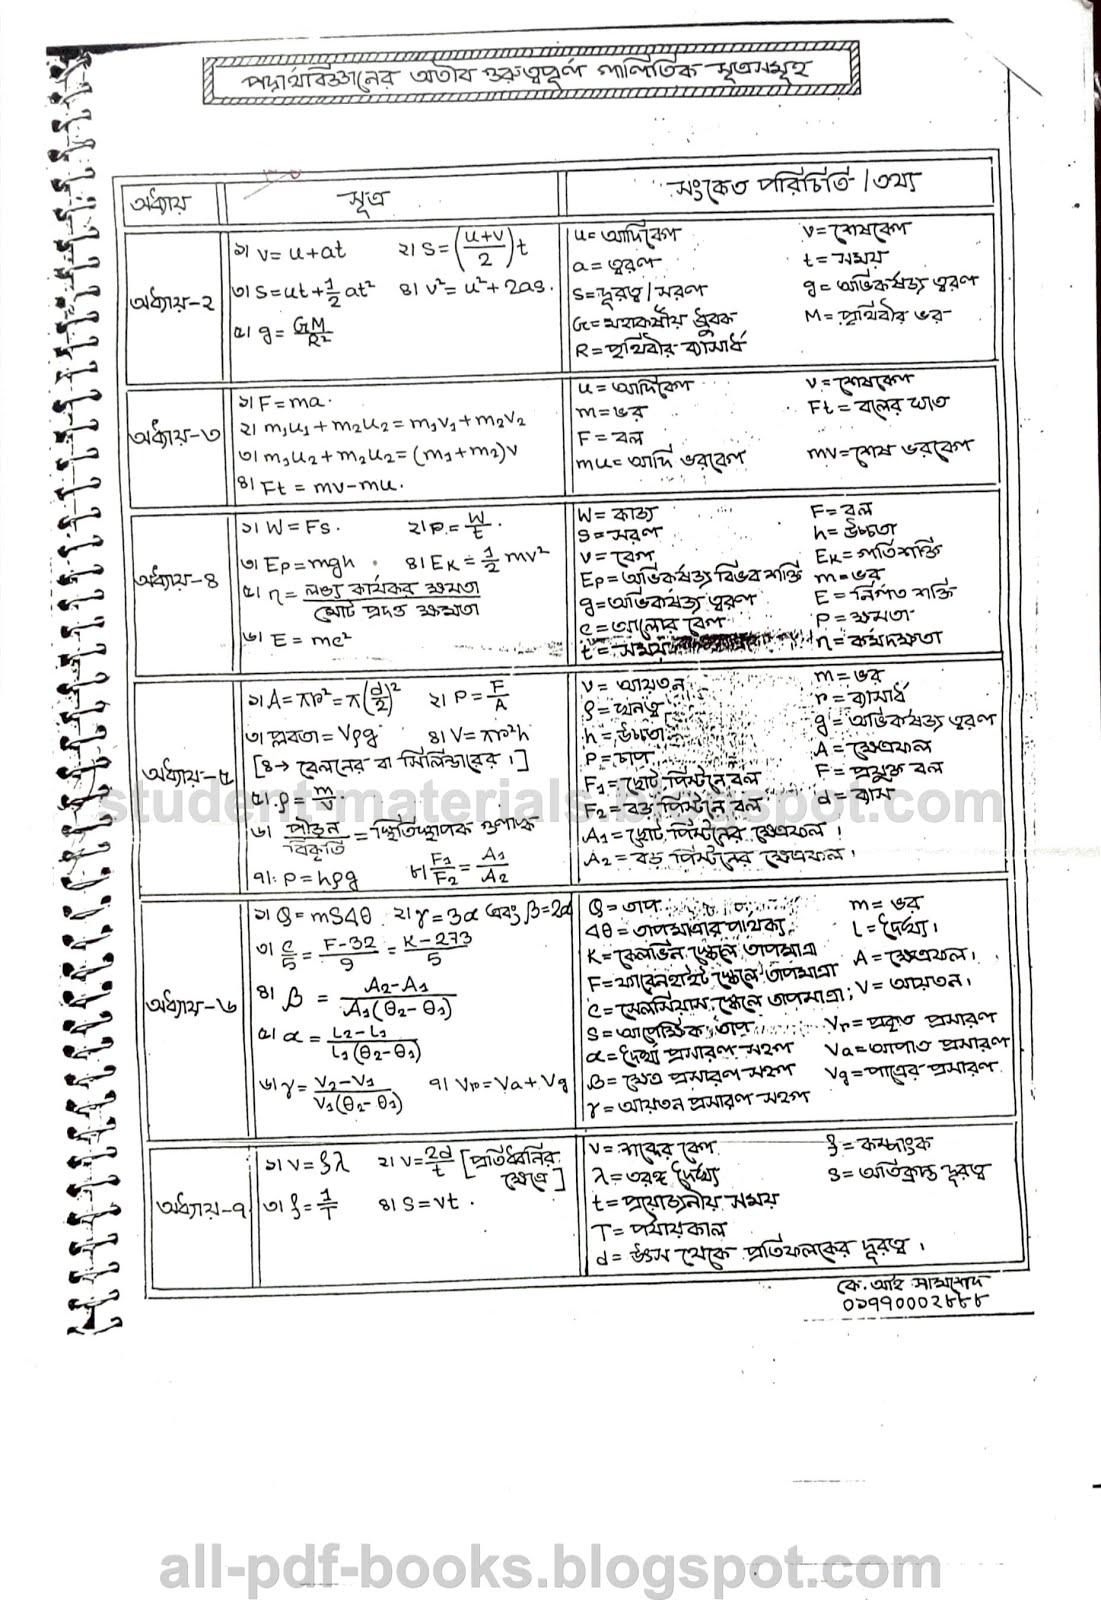 পদার্থবিজ্ঞানের অতীব গুরুত্বপূর্ণ গাণিতিক সূত্রসমূহ
অধ্যায় সূত্র সংকেত পরিচিতি / তথ্য
অধ্যায়-২
১। v = u+at ২। S = (u+v/2)t
৩। S = ut + 1/2 at² ৪। v² = u² + 2as.
৫। g = GM/R²
u = আদিবেগ v = শেষবেগ
a = ত্বরণ t = সময়
S = দূরত্ব / সরণ g = অভিকর্ষজ ত্বরণ
G = মহাকর্ষীয় ধ্রুবক M = পৃথিবীর ভর
R = পৃথিবীর ব্যাসার্ধ
অধ্যায়-৩
১। F = ma.
২। m₁u₁ + m₂u₂ = m₁v₁ + m₂v₂
৩। m₁u₂ + m₂u₂ = (m₁+m₂)v
৪। Ft = mv-mu.
u = আদিবেগ v = শেষবেগ
m = ভর Ft = বলের ঘাত
F = বল
mu = আদি ভরবেগ mv = শেষ ভরবেগ
অধ্যায়-৪
১। W = Fs. ২। P = W/t.
৩। Ep = mgh ৪। Ek = 1/2 mv²
৫। η = লভ্য কার্যকর ক্ষমতা/মোট প্রদত্ত ক্ষমতা
৬। E = mc²
W = কাজ F = বল
S = সরণ h = উচ্চতা
v = বেগ Ek = গতিশক্তি
Ep = অভিকর্ষজ বিভব শক্তি m = ভর
g = অভিকর্ষজ ত্বরণ E = নির্গত শক্তি
c = আলোর বেগ P = ক্ষমতা
t = সময় η = কর্মদক্ষতা
অধ্যায়-৫
১। A = πr² = π(d/2)² ২। P = F/A
৩। প্লবতা = Vρg ৪। V = πr²h
[৪→ বেলনের বা সিলিন্ডারের।]
৫। ρ = m/v
৬। পীড়ন/বিকৃতি = স্থিতিস্থাপক গুণাঙ্ক
৭। P = hρg ৮। F₁/F₂ = A₁/A₂
V = আয়তন m = ভর
ρ = ঘনত্ব r = ব্যাসার্ধ
h = উচ্চতা g = অভিকর্ষজ ত্বরণ
P = চাপ A = ক্ষেত্রফল
F₁ = ছোট পিস্টনে বল F = প্রযুক্ত বল
F₂ = বড় পিস্টনে বল d = ব্যাস
A₁ = ছোট পিস্টনের ক্ষেত্রফল।
A₂ = বড় পিস্টনের ক্ষেত্রফল।
অধ্যায়-৬
১। Q = mSΔθ ২। γ = 3α এবং β = 2α
৩। C/5 = F-32/9 = K-273/5
৪। β = A₂-A₁/A₁(θ₂-θ₁)
৫। α = L₂-L₁/L₁(θ₂-θ₁)
৬। γ = V₂-V₁/V₁(θ₂-θ₁) ৭। Vr = Va + Vg
Q = তাপ m = ভর
Δθ = তাপমাত্রার পার্থক্য L = দৈর্ঘ্য।
K = কেলভিন স্কেলে তাপমাত্রা A = ক্ষেত্রফল।
F = ফারেনহাইট স্কেলে তাপমাত্রা
C = সেলসিয়াস স্কেলে তাপমাত্রা; V = আয়তন।
S = আপেক্ষিক তাপ Vr = প্রকৃত প্রসারণ
α = দৈর্ঘ্য প্রসারণ সহগ Va = আপাত প্রসারণ
β = ক্ষেত্র প্রসারণ সহগ Vg = পাত্রের প্রসারণ
γ = আয়তন প্রসারণ সহগ
অধ্যায়-৭
১। v = fλ ২। v = 2d/t [প্রতিধ্বনির ক্ষেত্রে]
৩। f = 1/T ৪। S = vt.
v = শব্দের বেগ f = কম্পাংক
λ = তরঙ্গ দৈর্ঘ্য S = অতিক্রান্ত দূরত্ব
t = প্রয়োজনীয় সময়
T = পর্যায়কাল
d = উৎস থেকে প্রতিফলকের দূরত্ব।
কে. আই
student-materials.blogspot.com
all-pdf-books.blogspot.com